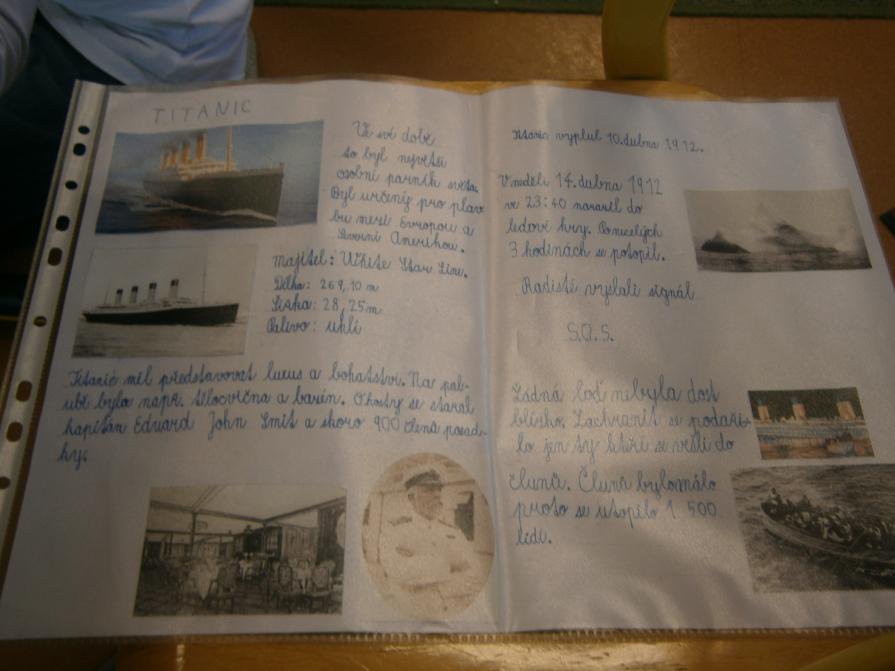 TITANIC
Ve své době
to byl největší
osobní parník světa.
Byl určený pro plav-
bu mezi Evropou a
Severní Amerikou.
majitel: White Star Line.
Délka: 269,10 m
Šířka: 28,25m
Palivo: uhlí
Titanic měl představovat luxus a bohatství. Na pal-
ubě byla např. tělocvična a bazén. O hosty se staral
kapitán Eduard John Smit a skoro 900 členů posád-
ky.
Titanic vyplul 10.dubna 1912.
V neděli 14.dubna 1912
ve 23:40 narazil do
ledové kry. Po necelých
3 hodinách se potopil.
Radisté vyslali signál
S.O.S.
Žádná loď nebyla dost
blízko. Zachránit se podaři-
lo jen ty kteří se vešli do
člunů. Člunů bylo málo
proto se utopilo 1 500
lidí.